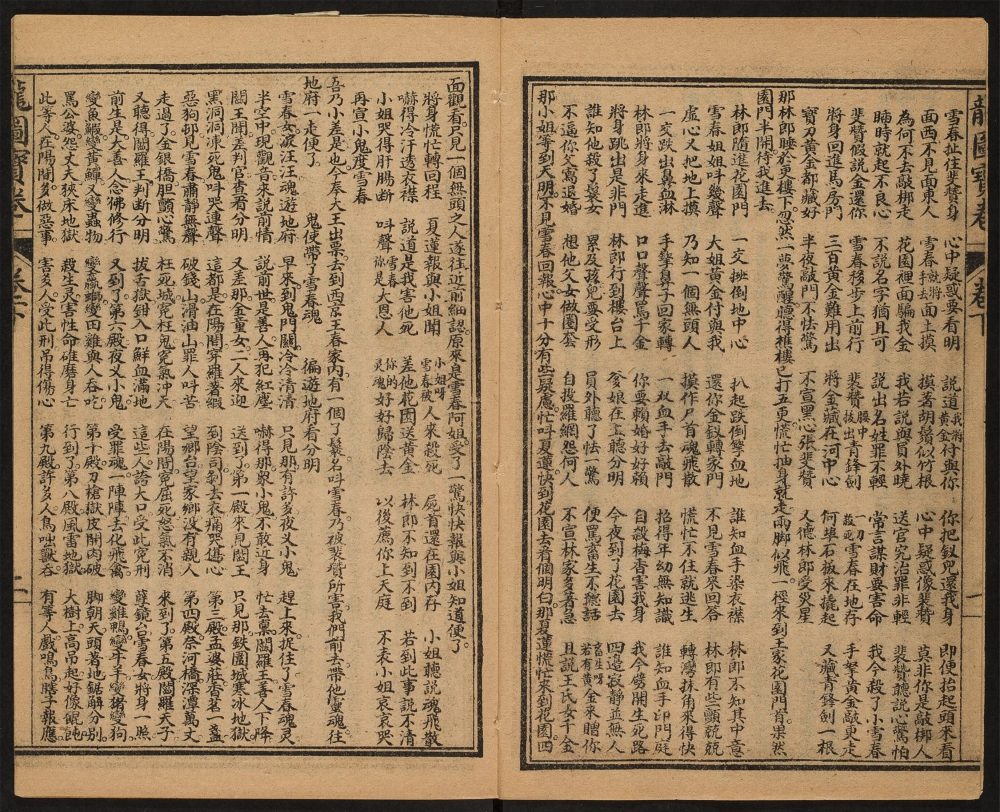 龍圖寶卷 卷下 一
雪春扯住裴贊身 心中疑惑要看明 說道我將黃金付與你 你把釵兒還我身 即便抬起頭來看
面西不見面東人 雪春就將面上摸 摸著胡鬚似竹根 心中疑惑像裴贊 莫非你是敲梆人
為何不去敲梆走 花園裡面騙我金 我若說與員外曉 送官究治罪非輕 裴贊聽說心驚怕
睡時就起不良心 不說名字猶且可 說出名姓罪不輕 常言謀財要害命 我今殺了小雪春
裴贊假說金還你 雪春移步上前行 裴贊腰中拔出青鋒劍 一刀殺死雪春在地存 手拏黃金敲更走
將身回進馬房門 三百黃金難用出 將金藏在河中心 何埠石板來撬起 又藏青鋒劍一根
寶刀黃金都藏好 半夜敲門不怯驚 不宣黑心張裴贊 又德林郎受災星
那林郎睡於更樓下忽然一夢驚醒聽得樵樓已打五更慌忙抽身就走兩脚似飛一徑來到王家花園門首果然
園門半開待我進去
林郎隨進花園門 一交掀倒地中心 扒起跌倒拏血地 誰知血手染衣襟 林郎不知其中意
雪春姐姐叫幾聲 大姐黃金付與我 還你金釵轉家門 不見雪春來回答 林郎有些顫兢兢
虛心又把地上摸 乃知一個無頭人 摸作尸首魂飛散 慌忙不住就逃生 轉灣抹角來得快
一交跌出鼻血淋 一手拏鼻子回家轉 一双血手去敲門 招得年幼無知識 誰知血手印門庭
林郎將身來走進 口口聲聲罵一聲 你要賴婚好好賴 自設梅香害我身 我今劈開生死路
將身跳出是非門 林郎行到樓台上 爹娘在上聽分明 今夜到了花園去 四邊寂靜並無人
誰知他殺了鬟女 累及孩兒要受形 員外聽了怯一驚 便罵畜生不聽話 畜生呀若有黃金來贈你
不逼你父寫退婚 想他父女做圈套 自投羅網怨何人 不宣林家多着急 且說王氏女千金
那小姐等到天明不見雪春回報心中十分有些疑慮忙叫夏蓮快到花園去看個明白那夏蓮慌忙來到花園四
面觀看只見一個無頭之人遂往近前細認原來是雪春阿姐受了一驚快快報與小姐知道便了
將身慌忙轉回程 夏蓮報與小姐聞 小姐呀雪春被人來殺死 屍首還在園內存 小姐聽說魂飛散
嚇得冷汗透衣襟 說道是我害他死 差他花園送黃金 林郎不知到不到 若到此事說不清
小姐哭得肝腸斷 叫聲雪春你是大恩人 你的靈魂好好歸陰去 以後薦你上天庭 不表小姐哀哀哭
再宣小鬼度雪春
吾乃小差是也今奉大王出票去到西京王春家內有一個了鬟名叫雪春乃被裴贊所害我們前去帶他靈魂往
地府一走便了 鬼使帶了雪春魂 徧遊地府看分明
雪春女淚汪汪魂遊地府 早來到鬼門關冷冷清清 只見那有許多夜叉小鬼 趕上來捉住了雪春魂灵
半空中現觀音來說前情 說前世是善人再犯紅塵 嚇得那衆小鬼不敢近身 忙去稟閻羅王善人下降
閻王聞差判官查看分明 又差那金童女二人來迎 送到了第一殿來見閻王 只見那鉄圍城寒冰地獄
黑洞洞凍死鬼叫哭連聲 這都是在陽間穿羅著緞 到陰司剝去衣痛哭傷心 第三殿孟婆庄香茗一盞
惡狗邨見雪春肅靜無聲 破錢山滑油山罪人叫苦 望鄉台望家鄉沒有親人 第四殿奈河橋深潭萬丈
走過了金銀橋胆顫心驚 枉死城冤枉鬼冤氣冲天 在陽間冤屈死怒氣不消 來到了第五殿閻羅天子
又聽得閻羅王判斷分明 拔舌獄鉗入口鮮血滿地 這些人誇大口受此冤刑 孽鏡台雪春女將身一照
前生是大善人念佛修行 又到了第六殿夜叉小鬼 受罪魂一陣陣去化飛禽 變雞鴨變牛羊變猪變狗
變魚鰕變黃鱔又變蟲物 變螺螄變田雞與人吞吃 第十殿刀槍獄皮開肉破 脚朝天頭著地鋸解分別
罵公婆怨丈夫狹床地獄 殺生灵害性命碓磨身亡 行到了第八殿風雷地獄 大樹上高吊起好像餛飩
此等人在陽間多做惡事 害多人受此刑吊得傷心 第九殿許多人鳥咄獸吞 有等人戲鳴鳥瞎子報應
龍圖寶卷 卷下 二